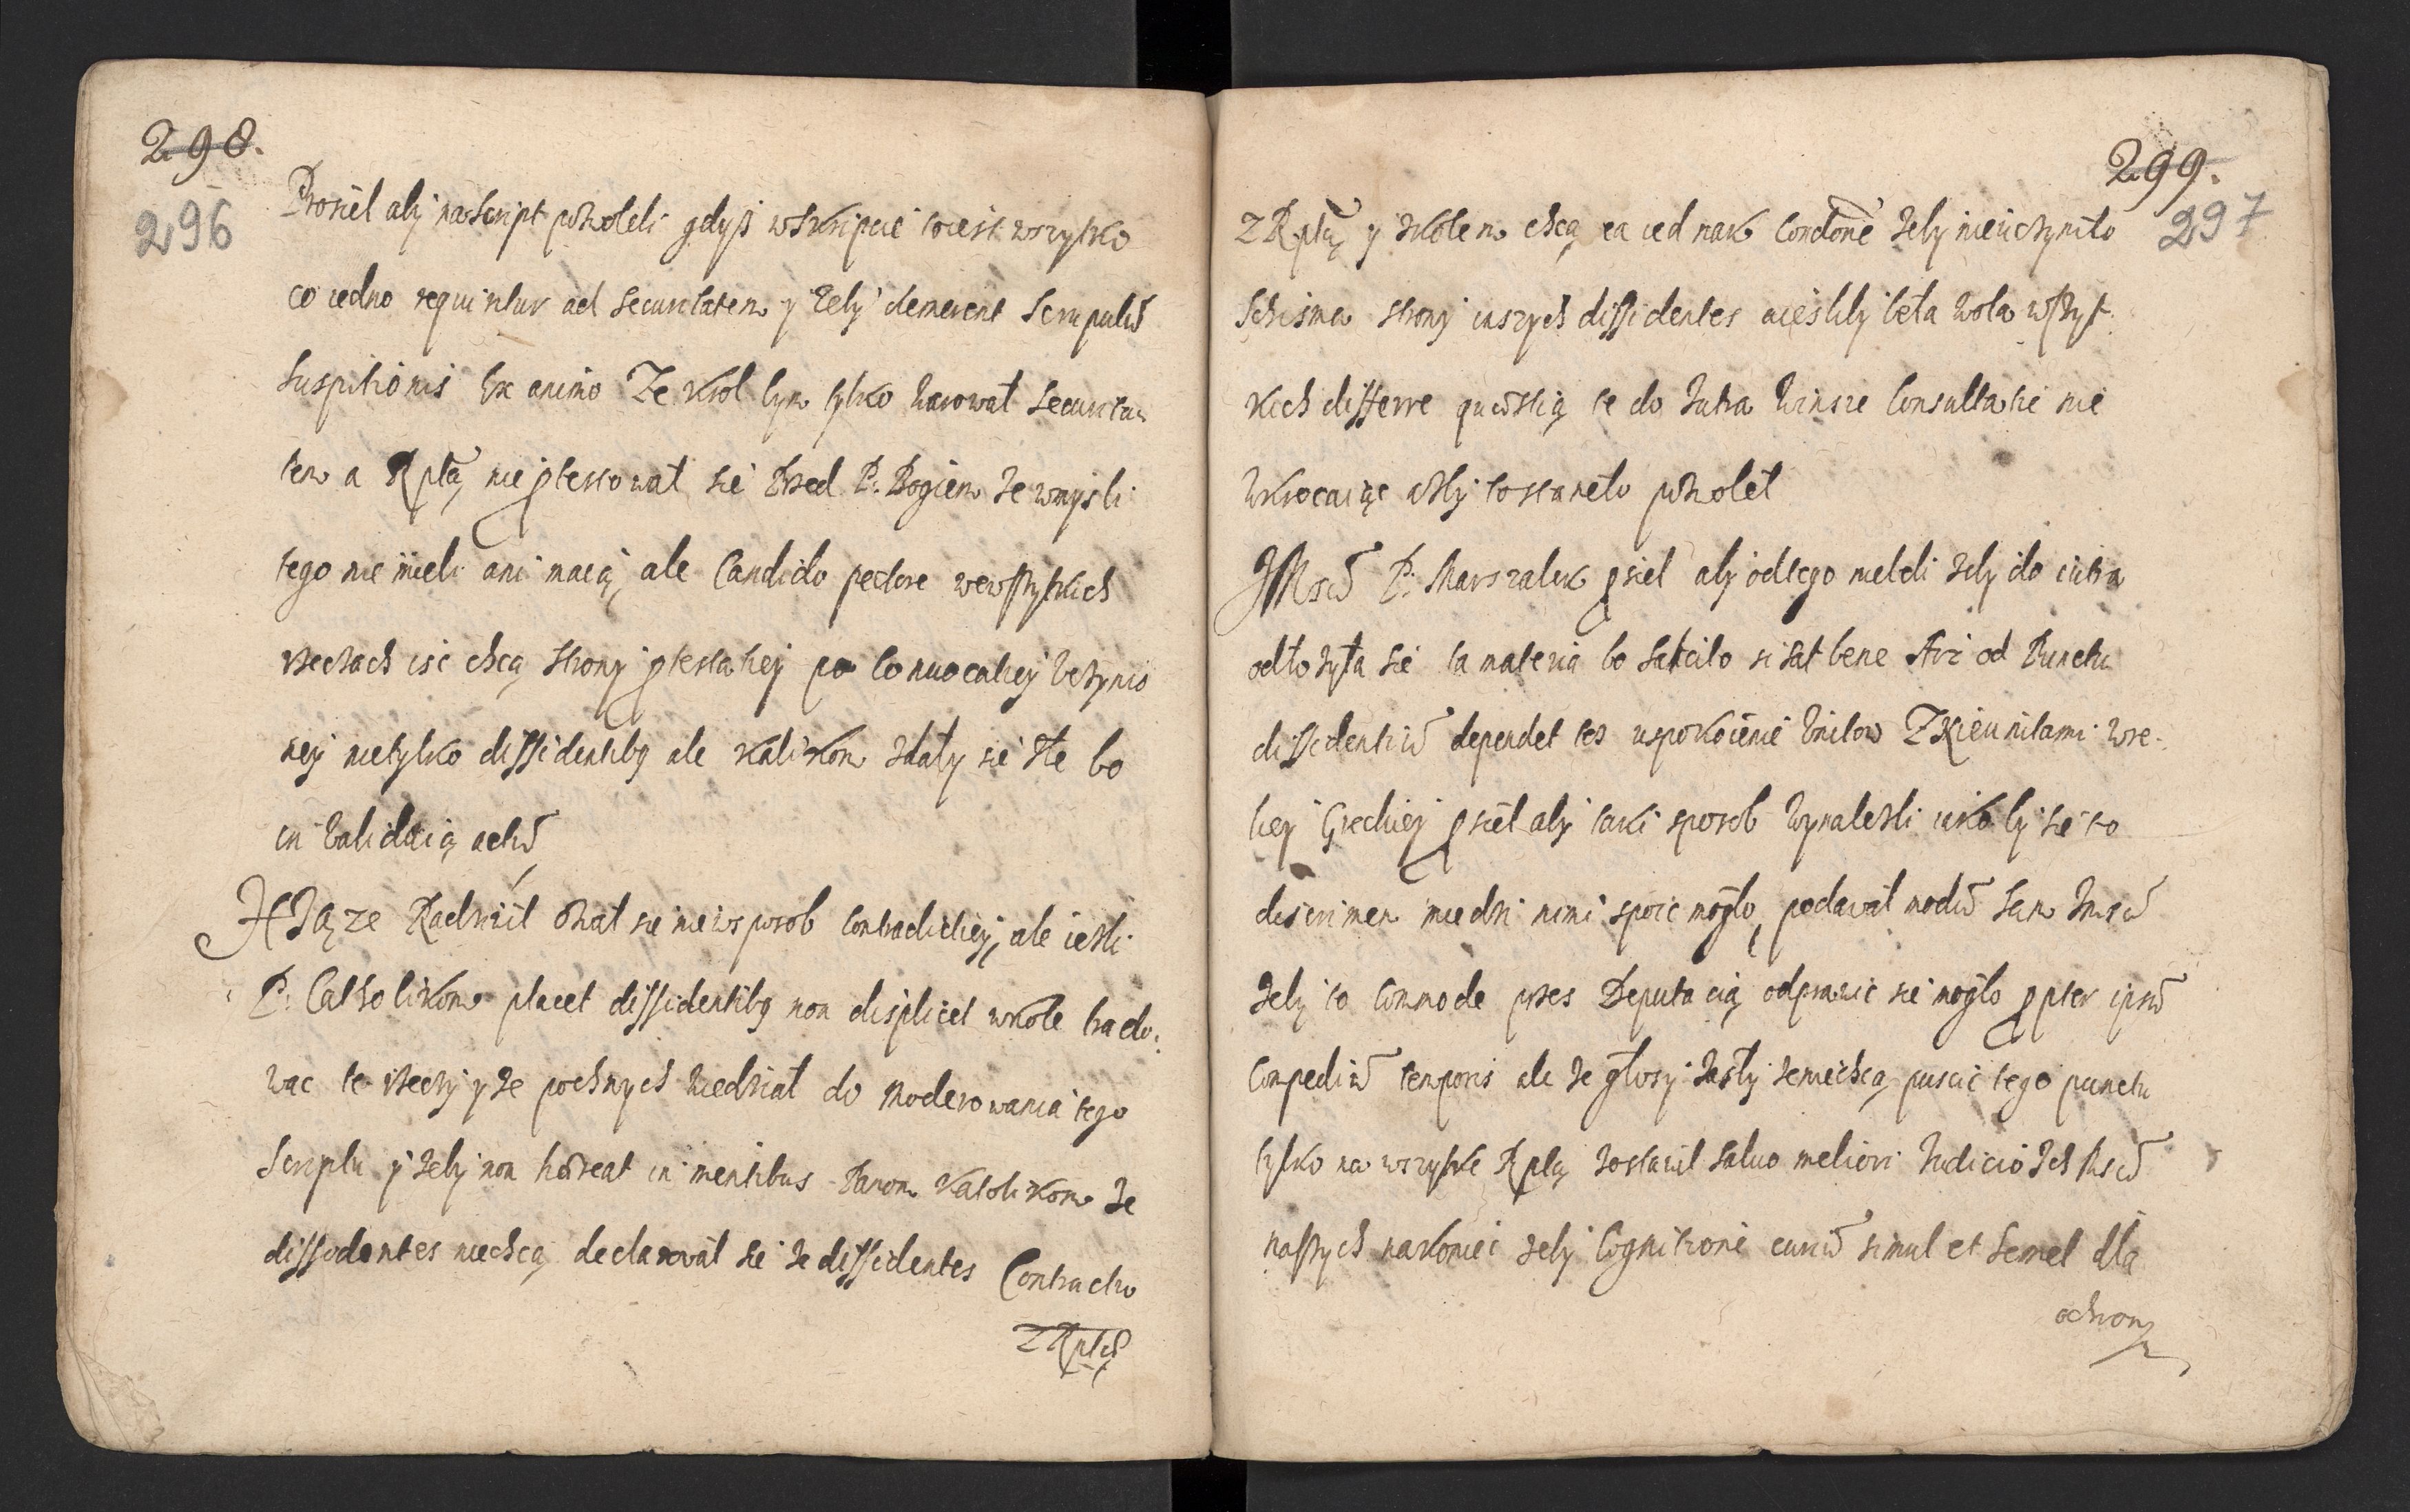 298.
296
Prosieł aby na Script pozwoleli gdysz w Skripcie to iest wszystko
co iedno requiritur ad securitatem y żeby demerent Scrupulu̅
Suspitionis Ex animo Ze Krol tym tylko warował Securita
tem a Rptą nie ꝓtestował sie Przed P. Bogiem że w mysli
tego nie mieli ani maią, ale Candido pectore we wszystkich
rzeczach isc chcą strony ꝓtestatiey po Conuocatiey Vczynio
ney nie tylko dissidentibꝯ ale Katlikom zdały sie złe bo
in validuią actu̅
X Jąże Radziwił ozwał sie nie w sposob Contradictiey, ale iesli
P. Catholikom placet dissidentibꝯ non displicet wkole trado:
wac te rzeczy y ze pochnych wiedział do Moderowania tego
Scriptu y żeby non hæreat in mentibus Panom Katolikom że
dissidentes niechcą declarował sie że dissidentes Contractu
Z Rptą
299.
297
Z Rptą y Krolem chcą ea iednak Condone̅ żeby nie uczynieło
Schisma strony inszych dissidentes a iesliby beła wola wszyt
kich differre quæstią te do Jutra w insze Consultatie nie
wkrocaiąc aby to stanęło pozwoleł
JMsc̅ P. Marszałek ꝓsieł aby od tego nie beli żeby do iutra
odłożyła sie ta materia bo sat cito si sat bene Asz od Punctu
dissidentiu̅ dependet tes uspokoienie Unitow Z Nieunitami w re-
liey Greckiey ꝓsieł aby taki sposob wynalezli iakoby sie to
discrimen miedzi nimi spoic mogło, podawał modu̅ sam Jmsc̅
żeby to Commode przes Deputacią odprawic sie mogło ꝓpter ipsu̅
Compediu̅ temporis ale że głosy zaszły że niechcą puscic tego punctu
tylko na wszytke Rptą zostawił saluo meliori Judicio Ich Msc̅
naszych nakoniec żeby Cognitione earu̅ simul et Semel dla
ochrony